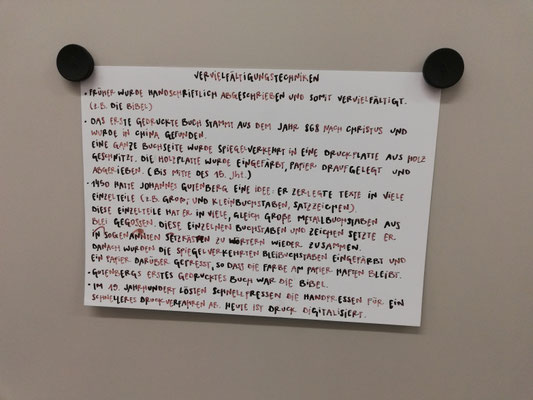 VERVIELFÄLTIGUNGSTECHNIKEN
• FRÜHER WURDE HANDSCHRIFTLICH ABGESCHRIEBEN UND SOMIT VERVIELFÄLTIGT.
(Z.B. DIE BIBEL)
• DAS ERSTE GEDRUCKTE BUCH STAMMT AUS DEM JAHR 868 NACH CHRISTUS UND
WURDE IN CHINA GEFUNDEN.
EINE GANZE BUCHSEITE WURDE SPIEGELVERKEHRT IN EINE DRUCKPLATTE AUS HOLZ
GESCHNITZT. DIE HOLZPLATTE WURDE EINGEFÄRBT, PAPIER DRAUFGELEGT UND
ABGERIEBEN. (BIS MITTE DES 15. JHT.)
• 1450 HATTE JOHANNES GUTENBERG EINE IDEE: ER ZERLEGTE TEXTE IN VIELE
EINZELTEILE (Z.B. GROß, UND KLEINBUCHSTABEN, SATZZEICHEN).
DIESE EINZELTEILE HAT ER IN VIELE, GLEICH GROßE METALLBUCHSTABEN AUS
BLEI GEGOSSEN. DIESE EINZELNEN BUCHSTABEN UND ZEICHEN SETZTE ER
IN SOGENANNTEN SETZKÄSTEN ZU WÖRTERN WIEDER ZUSAMMEN.
DANACH WURDEN DIE SPIEGELVERKEHRTEN BLEIBUCHSTABEN EINGEFÄRBT UND
EIN PAPIER DARÜBER GEPRESST, SO DASS DIE FARBE AM PAPIER HAFTEN BLEIBT.
• GUTENBERGS ERSTES GEDRUCKTES BUCH WAR DIE BIBEL.
• IM 19. JAHRHUNDERT LÖSTEN SCHNELLPRESSEN DIE HANDPRESSEN FÜR EIN
SCHNELLERES DRUCKVERFAHREN AB. HEUTE IST DRUCK DIGITALISIERT.